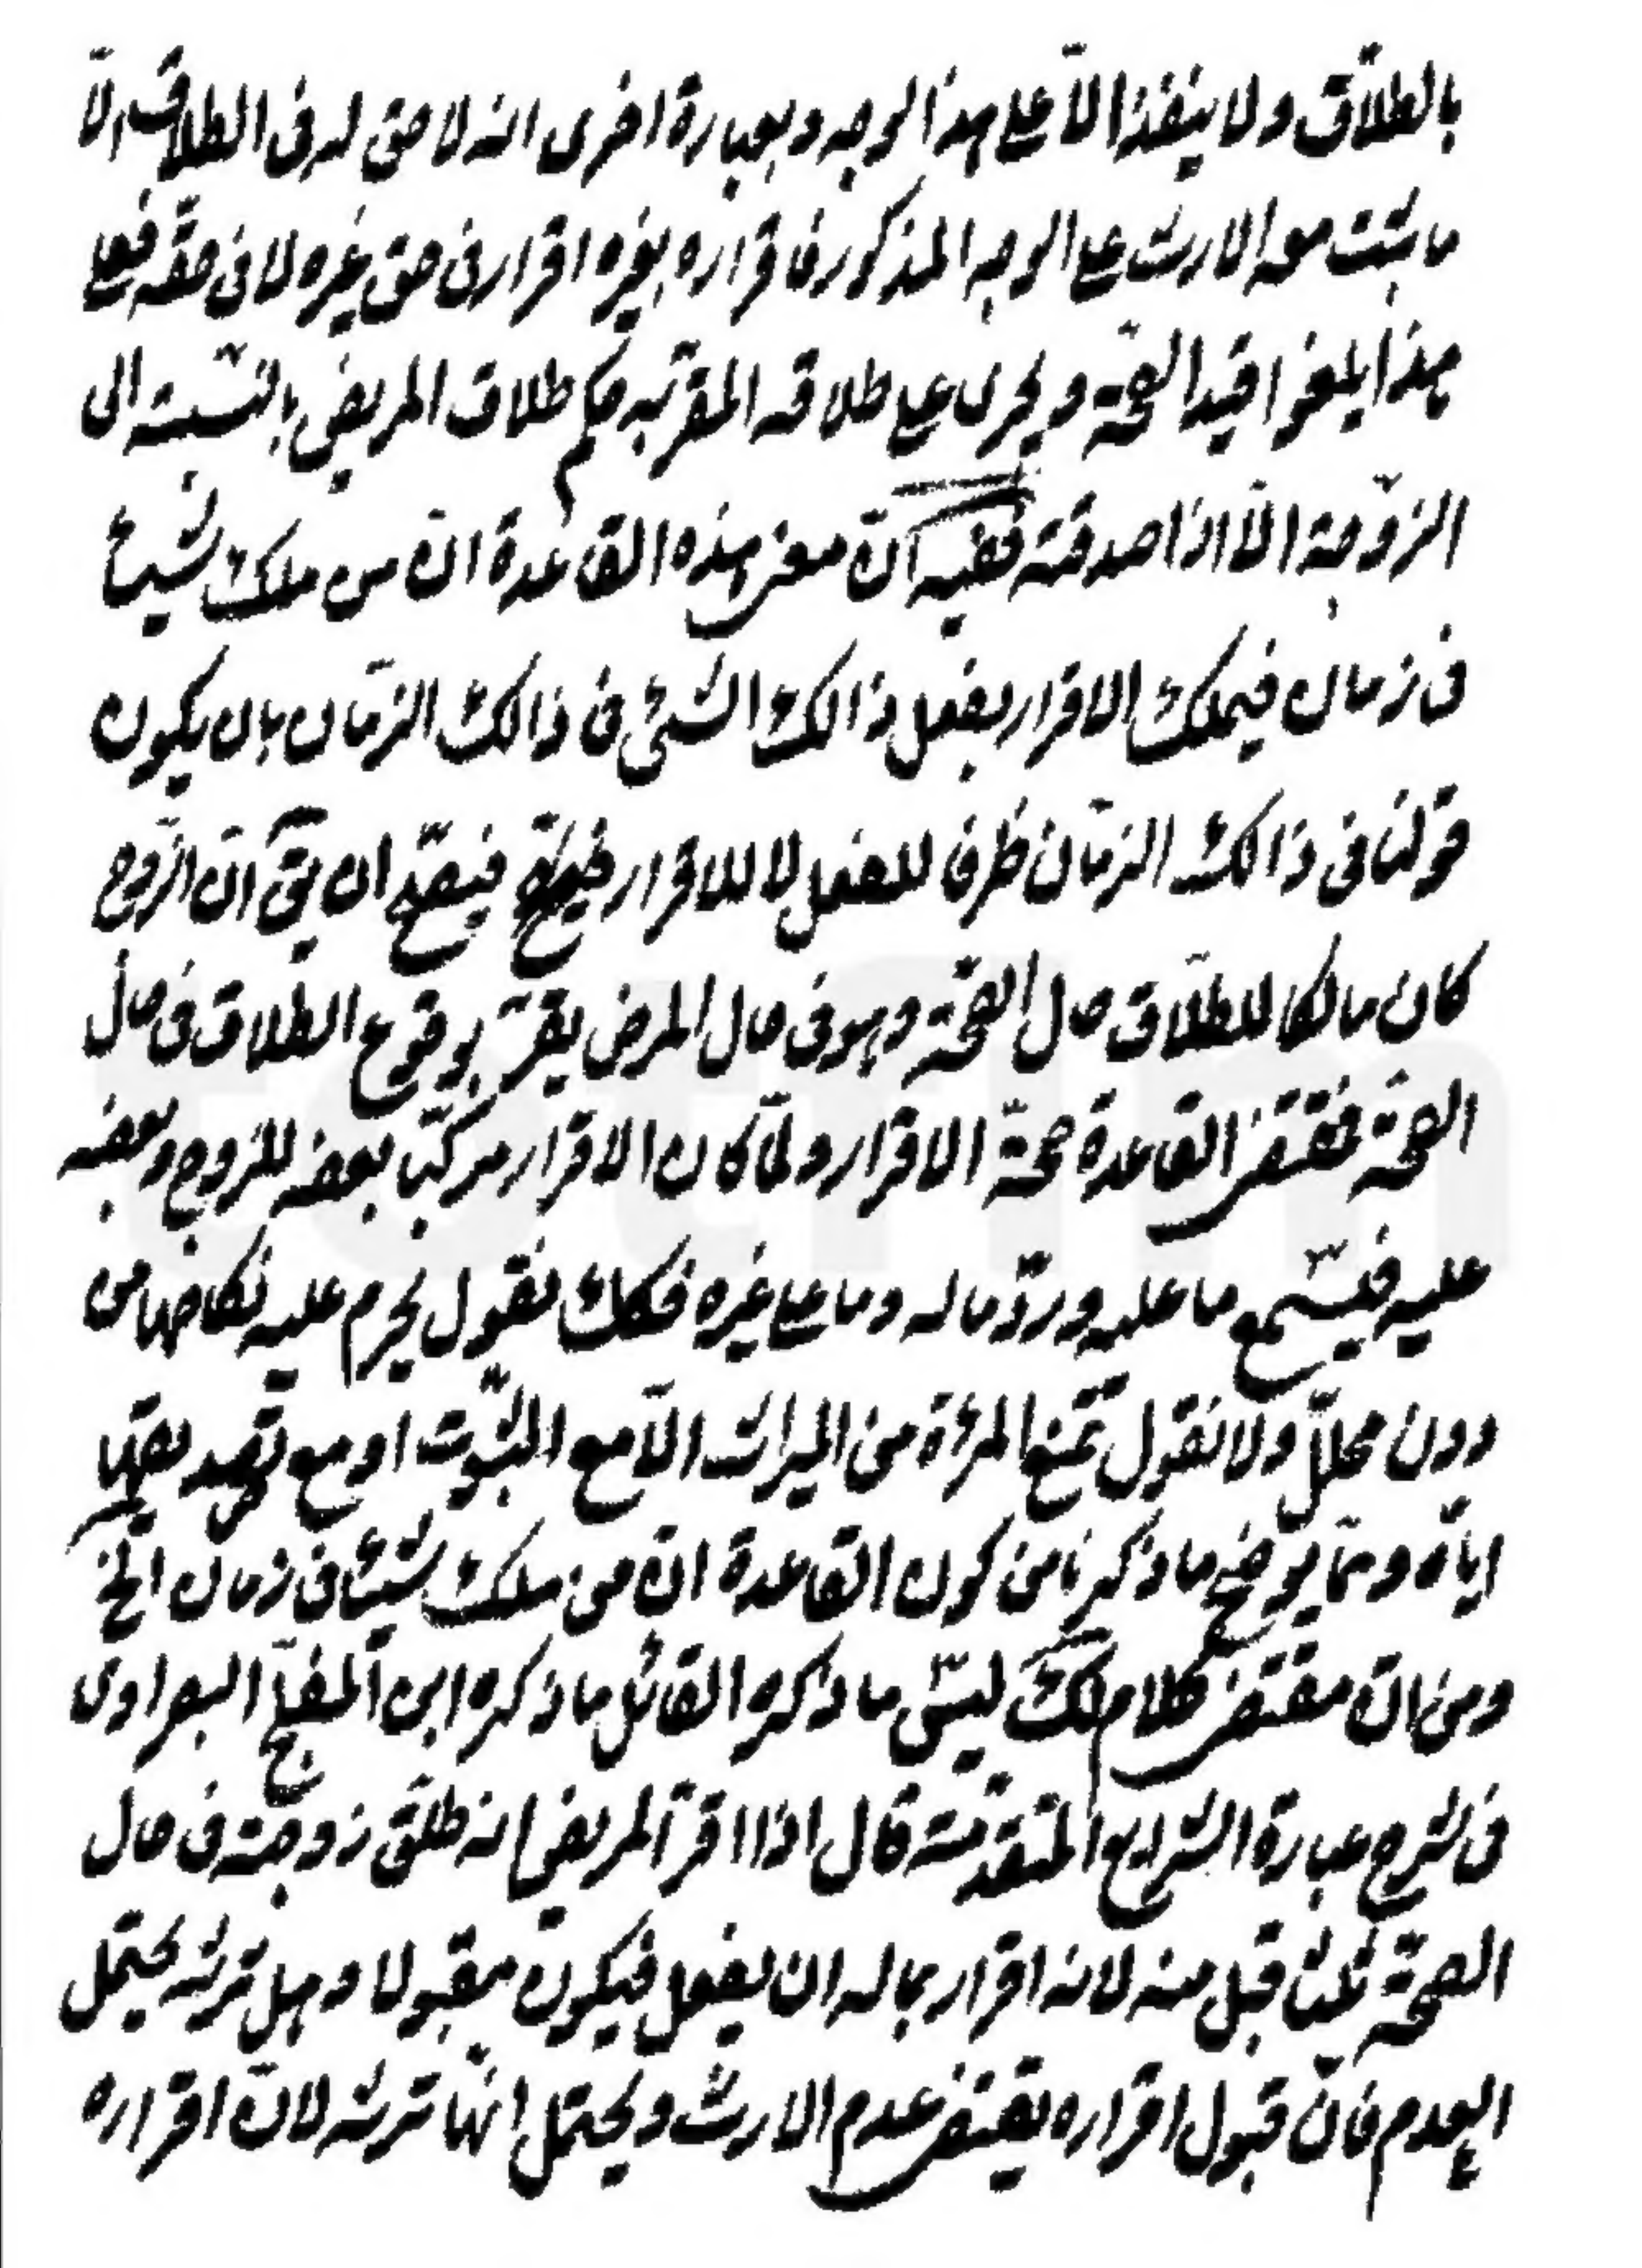 بالطلاق ولا ينفذ الّا على هذا الوجه وبعبارة اخرى انه لا حق له فى الطلاق الّا
ما يثبت معه الارث على الوجه المذكور فاقراره بغيره اقرار فى حق غيره لا فى حقه فعلى
هذا يلغوا قيد الصحّة ويجرى على طلاقه المقرّ به حكم طلاق المريض بالنّسبة الى
الزّوجة الّا اذا صدقته ففيه انّ معنى هذه القاعدة انّ من ملك شيئا
فى زمان فيملك الاقرار بفعل ذالك الشئ فى ذالك الزّمان بان يكون
قولنا فى ذالك الزمّان ظرفا للفعل لا للاقرار فيصحّ ان يقّ انّ الزّوج
كان مالكا للطلاق حال الصّحّة وهو فى حال المرض يقرّ بوقوع الطلاق فى حال
الصحّة فمقتضى القاعدة صحّة الاقرار ولمّا كان الاقرار مركّبا بعضه للزوج وبعضه
عليه فيسّمع ما عليه وردّ ما له وما على غيره فكك نقول يحرم عليه نكاحها من
دون محلّل ولا نقول تمنع المرئة من الميراث الّا مع الثّبوت او مع تصديقها
ايّاه وممّا يوضح ما ذكرنا من كون القاعدة انّ من ملك شيئا فى زمان الخ
ومن انّ مقتضى كلام لك ليسّ ما ذكره القائل ما ذكره ابن المفلح البعراوى
فى شرح عبارة الشرايع المتقدّمة قال اذا اقرّ المريض انه طلّق زوجته فى حال
الصحّة ثلثا قبل منه لانه اقرار بما له ان يفعل فيكون مقبولا وهل ترثه يحتمل
العدم فانّ قبول اقراره يقتضى عدم الارث ويحتمل انّها ترثه لانّ اقراره